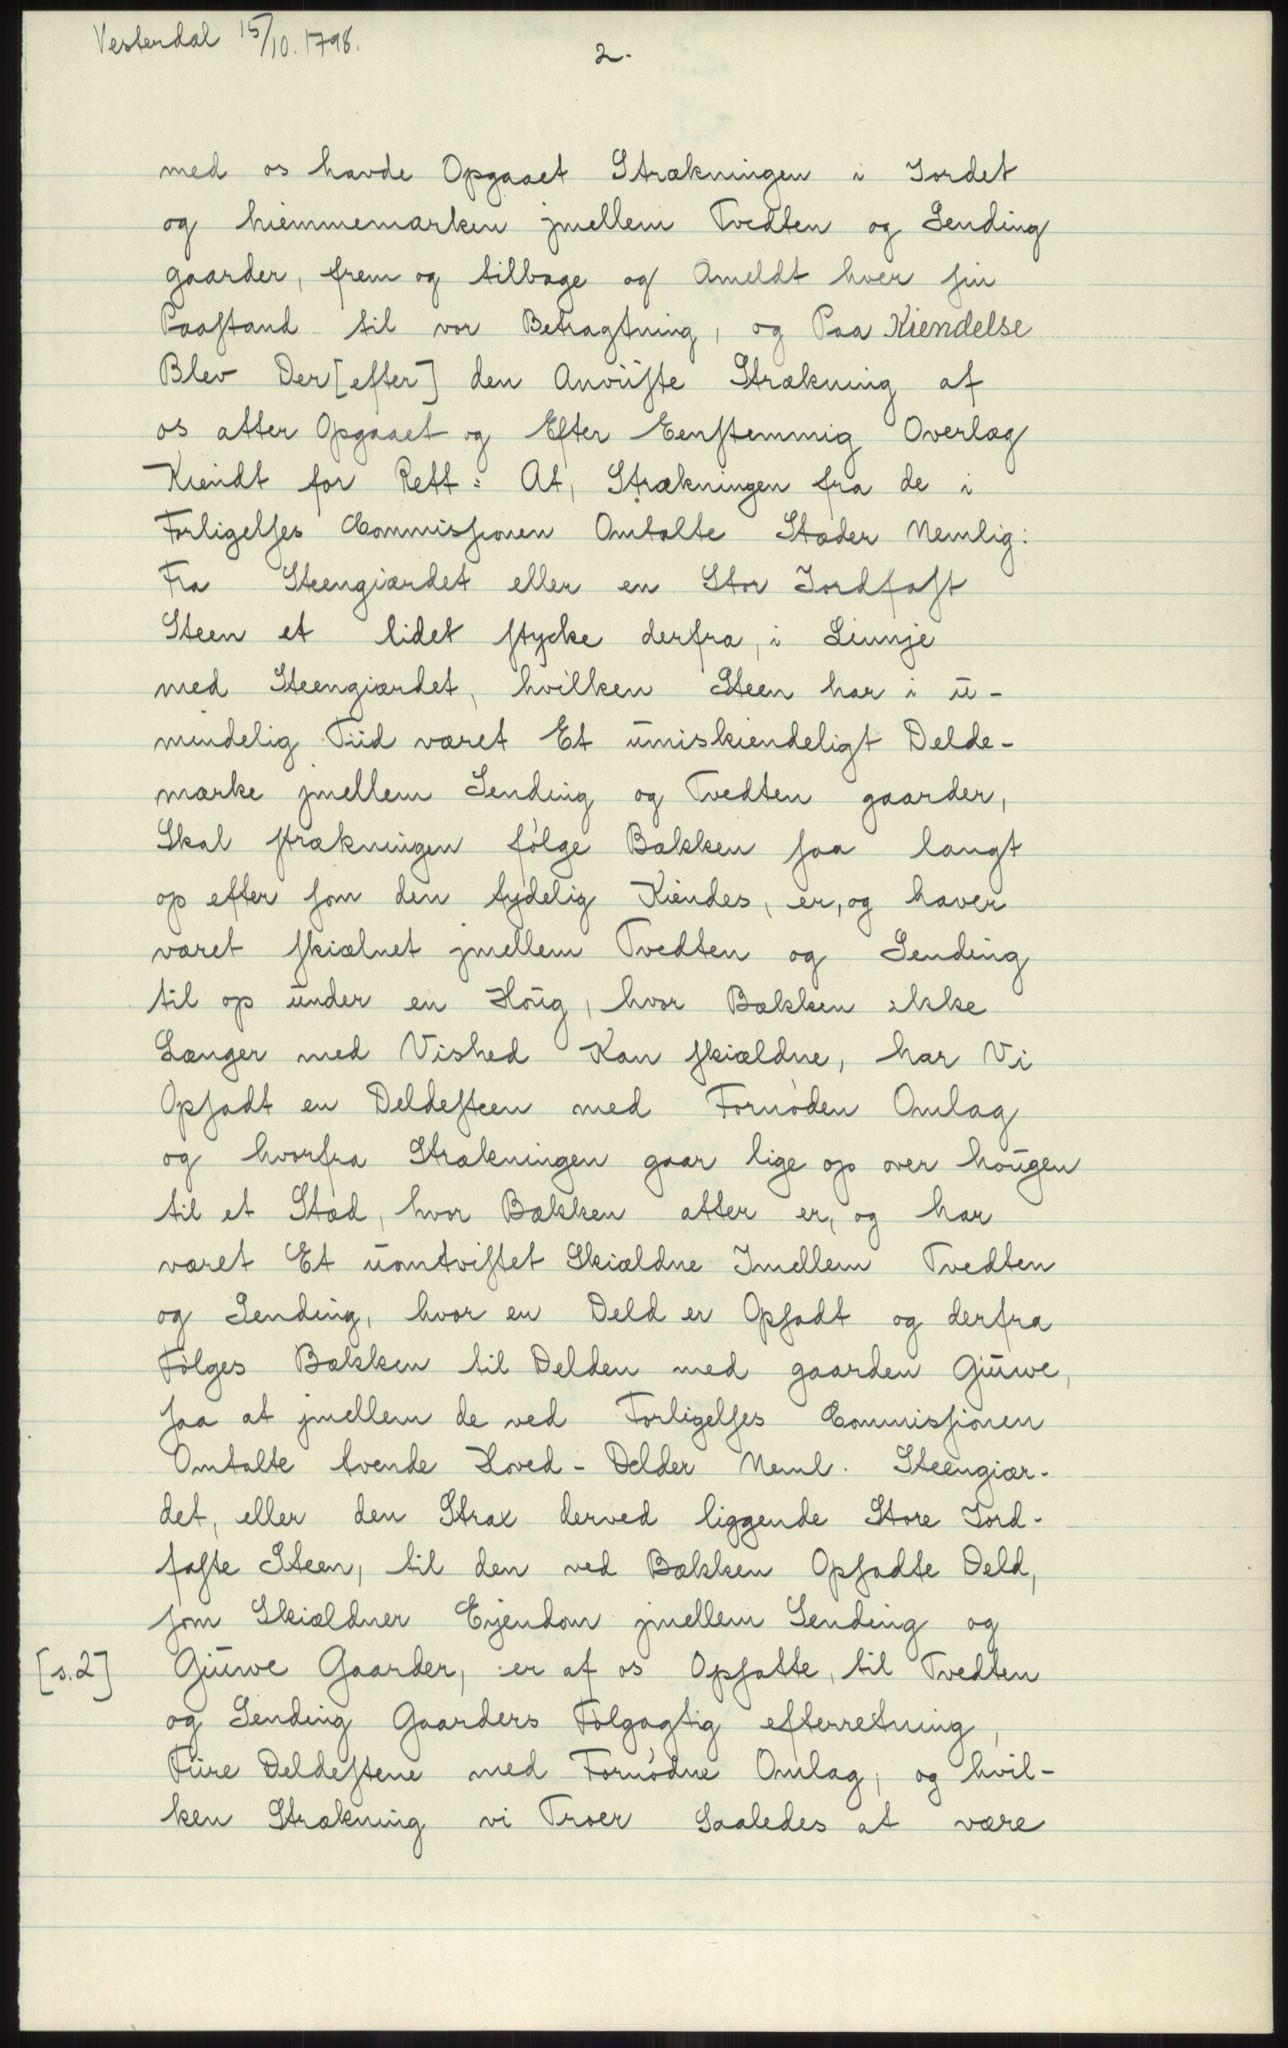 Vesterdal 15/10. 1798.
2.
med os havde Opgaaet Strækningen i Jordet
og hiemmemarken jmellem Tvedten og Sending
gaarder, frem og tilbage og Ameldt hver sin
Paastand til vor Betragtning, og Paa Kiendelse
Blev Der[efter] den Anviiste Strækning af
os atter Opgaaet og Efter Eenstemmig Overlæg
Kiendt for Rett: At, Strækningen fra de i
Forligelses Commissionen Omtalte Stæder Nemlig:
Fra Steengiærdet eller en Stor Jordfast
Steen et lidet stycke derfra, i Liinje
med Steengiærdet, hvilken Steen har i u-
mindelig Tiid været Et umiskiendeligt Delde-
mærke jmellem Sending og Tvedten gaarder,
Skal strækningen følge Bækken saa langt
op efter som den tydelig Kiendes, er, og haver
været skiælnet jmellem Tvedten og Sending
til op under en Houg, hvor Bækken ikke
Længer med Vished Kan skiældne, har Vi
Opsadt en Deldesteen med Fornøden Omlag
og hvorfra Strækningen gaar lige op over hougen
til et Stæd, hvor Bækken atter er, og har
været Et uomtvistet Skiældne Jmellem Tvedten
og Sending, hvor en Deld er Opsadt og derfra
Følges Bækken til Delden med gaarden Giuwe,
saa at jmellem de ved Forligelses Commissionen
Omtalte tvende Hoved-Delder Neml. Steengiær-
det, eller den Strax derved liggende Store Jord-
faste Steen, til den ved Bækken Opsadte Deld,
som Skiældner Eyendom jmellem Sending og
[s.2] Giuwe Gaarder, er af os Opsatte, til Tvedten
og Sending Gaarders Følgagtig efterretning,
Fiire Deldestene med Fornødne Omlag, og hvil-
ken Strækning vi Troer Saaledes at være